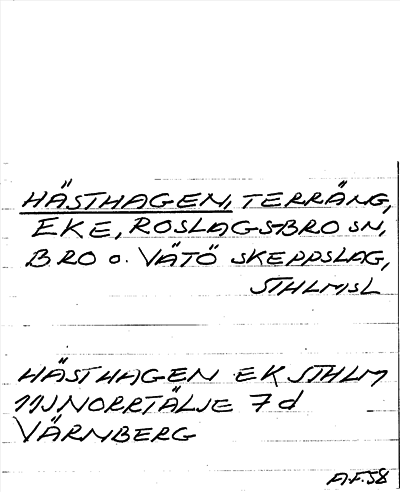 HÄSTHAGEN, TERRÄNG,
EKE, ROSLAGSBRO SN,
BRO o. VÄTÖ SKEPPSLAG,
STHLMSL
HÄSTHAGEN EK STHLM
11J NORRTÄLJE 7d
VÄRNBERG
A.F.58